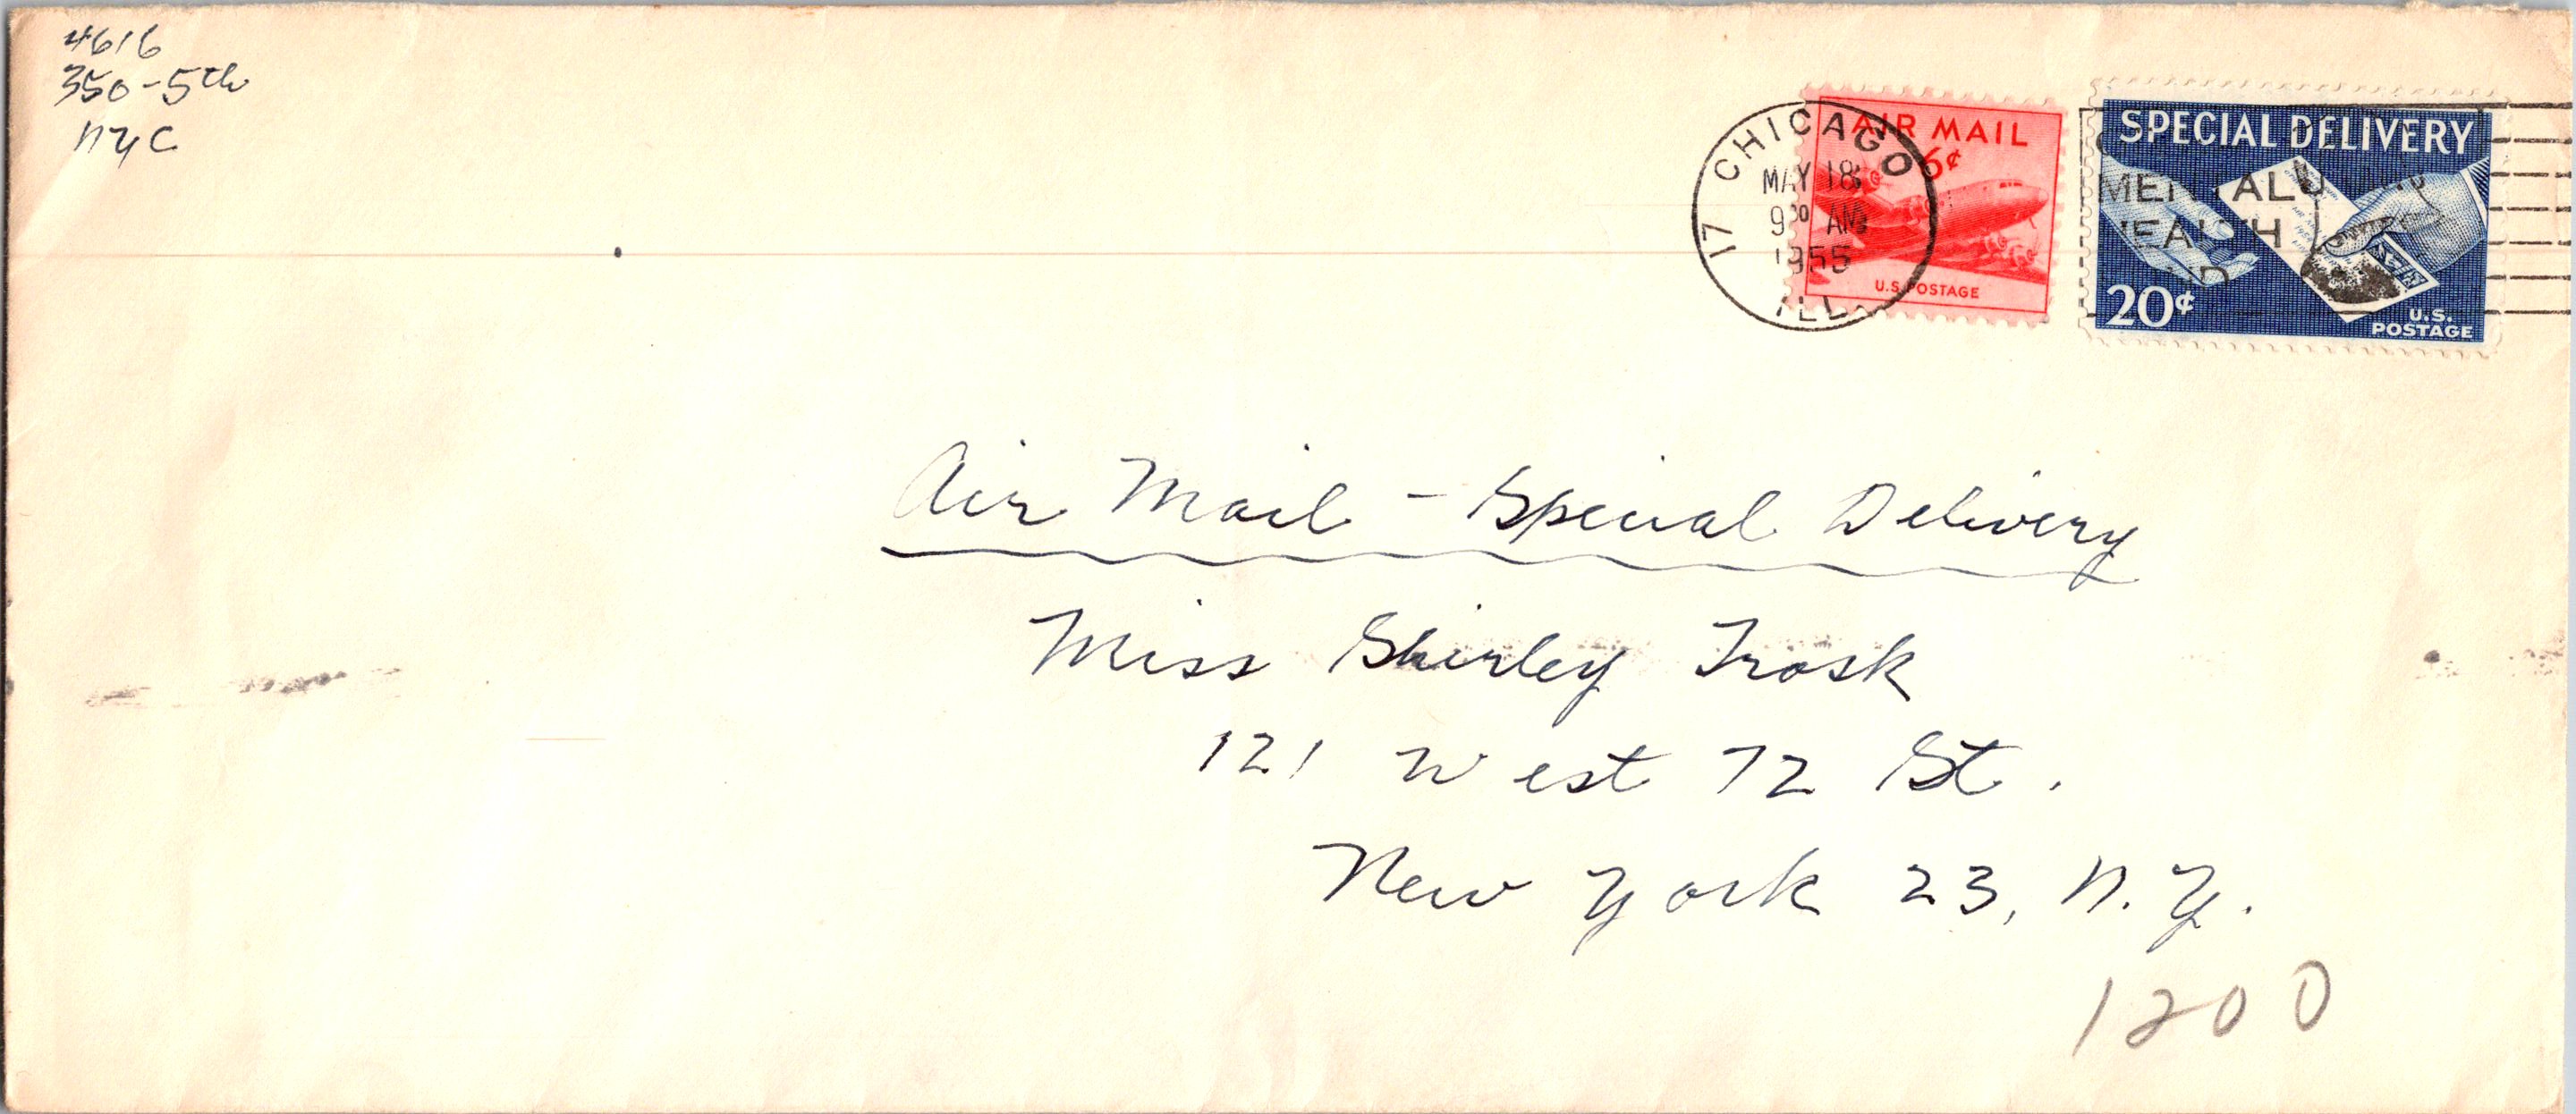 4616
350-5th
NYC
17 CHICAGO
MAY 18
9 30 AM
1955
ILL.
AIR MAIL
6¢
U.S. POSTAGE
SPECIAL DELIVERY
MENTAL
HEALTH
20¢
U.S.
POSTAGE
Air Mail - Special Delivery
Miss Shirley Trosk
121 West 72 St.
New York 23, N.Y.
1200